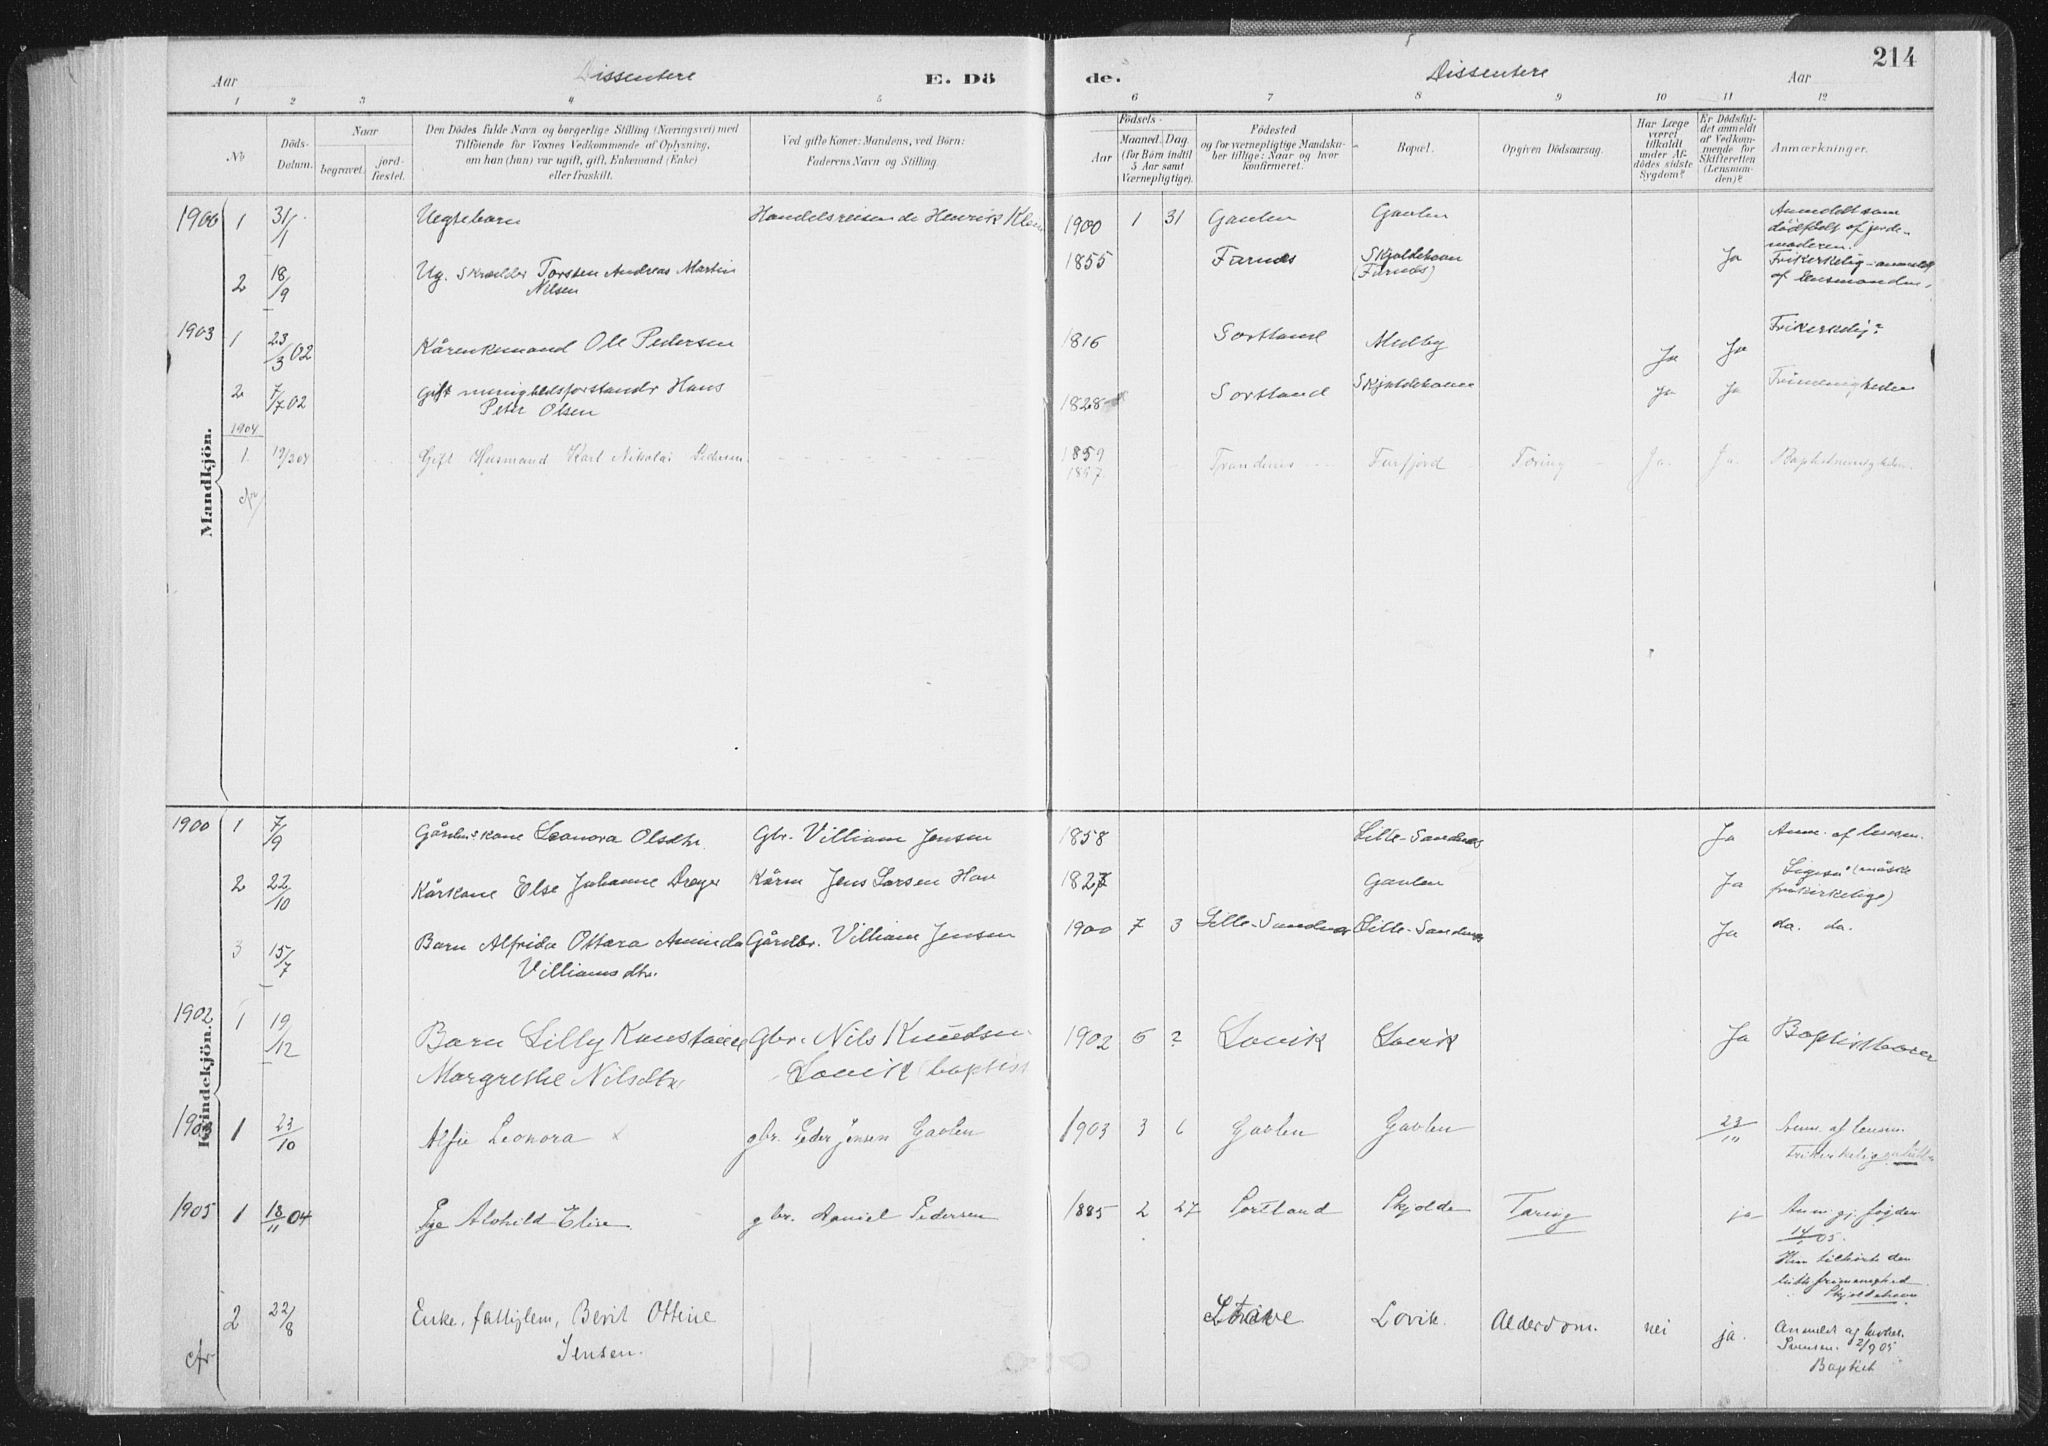 Aar
Dissentere
E. Dö
de.
Dissentere
Aar
214
1 2 3 4 5 6 7 8 9 10 11 12
No
Döds-Datum.
Naar
begravet.
jord-fæstet.
Den Dödes fulde Navn og borgerlige Stilling (Næringsvei) med
Tilföiende for Voxnes Vedkommende af Oplysning,
om han (hun) var ugift, gift, Enkemand (Enke)
eller fraskilt.
Ved gifte Koner: Mandens, ved Börn:
Faderens Navn og Stilling.
Födsels-
Aar
Maaned. Dag.
(for Börn indtil
5 Aar samt
Værnepligtige).
Födested
og for værnepligtige Mandska-
ber tillige: Naar og hvor
konfirmeret.
Bopæl.
Opgiven Dödsaarsag.
Har Læge
været
tilkaldt
under Af-
dödes sidste
Sygdom?
Er Dödsfal-
det anmeldt
af Vedkom-
mende for
Skifteretten
(Lensman-
den)?
Anmærkninger.
Mandkjön.
1900 1 31/1 Uegtebarn Handelsreisende Henrik 1900 1 31 Gavlen Gavlen Anmeldt som
dødfødt af jorde-
moderen.
2 18/9 Ug. Skrædder Torsten Andreas Martin
Nilsen 1855 Furnes Skjoldehavn
(Furnes) Ja Frikirkelig - anmeldt
af lensmanden.
1903 1 23/3 02 Kårenkemand Ole Pedersen 1816 Sortland Ja Ja Frikirkelig?
2 7/7 02 Gift menighedsforstander Hans
Peter Olsen 1828 Sortland Skjoldehavn Ja Ja Frimenigheden
1904
1. 19/3 04 Gift Husmand Karl Nikolai Pedersen 1859
1857 Trandenes Furfjord Tæring Ja Ja Baptistmenigheden
Kvindekjön.
1900 1 7/9 Gårdm's kone Leonora Olsdtr. Gbr. Villiam Jensen 1858 Lille-Sandnes Ja Anm. af lensm.
2 22/10 Kårkone Else Johanne Dreyer Kårm Jens Larsen Hav 1827 Gavlen Ja Ligeså (måske
frikirkelige)
3 15/7 Barn Alfrida Ottara Aminda
Villiamsdtr. Gårdbr. Villiam Jensen 1900 7 3 Lille-Sandnes Lille-Sandnes Ja do. do.
1902 1 19/12 Barn Lilly Konstanse
Margrethe Nilsdtr. Gbr. Nils Knudsen
Lovik (baptist 1902 6 2 Lovik Lovik Ja
1903 1 23/10 Alfie Leonora x gbr. Peder Jensen Gavlen 1903 3 6 Gavlen Gavlen 23/10 Anm. af lensm.
Frikirkelig
1905 1 18/11 04 Pge Alvhild Elise gbr. Daniel Pedersen 1885 2 27 Sortland Skjolde Tæring ja Anm. gj. fogden
05.
Hun tilhørte den
luth frimenighed
Skjoldehavn
2 22/8 Enke, fattiglem, Berit Ottine
Jensen. Lovik. Alderdom. nei ja. Anmeldt af
Svensen. 2/9 05
Baptist